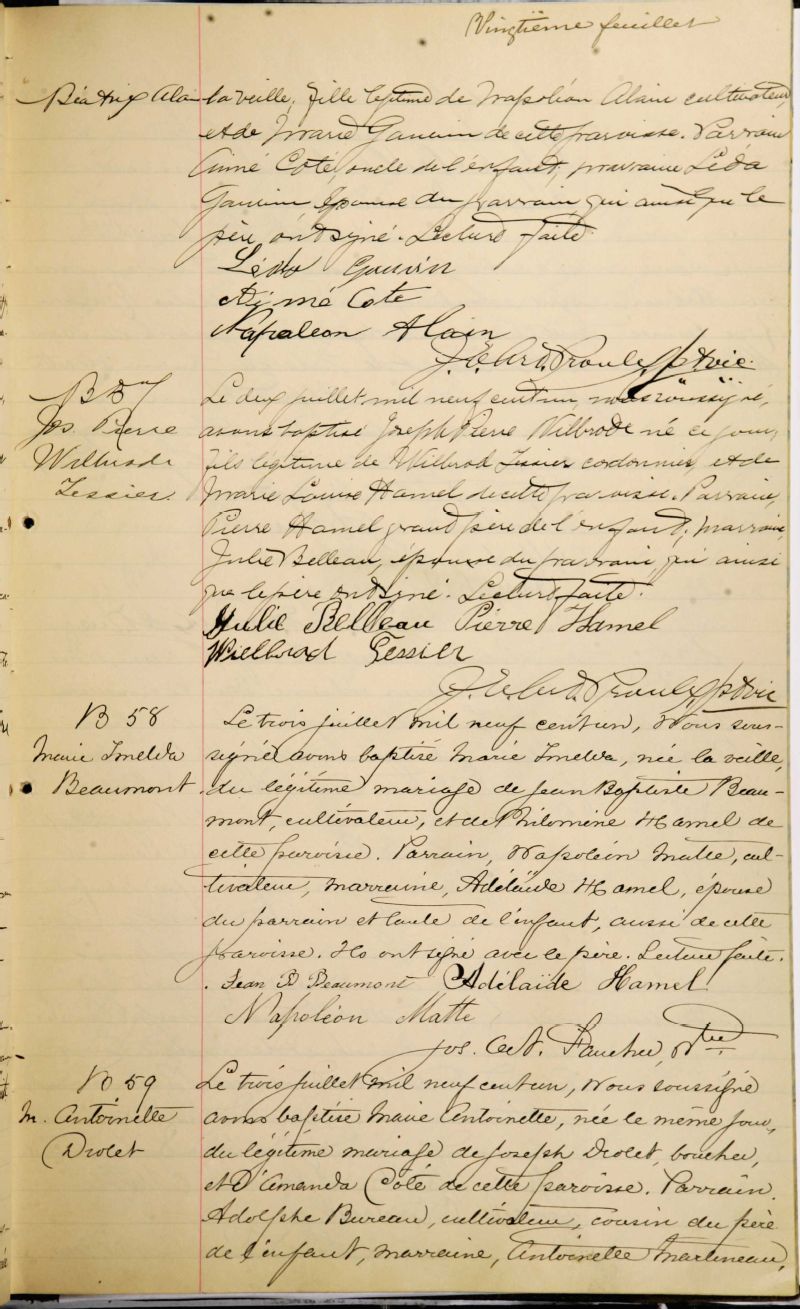 Vingtième feuillet
Béatrix Alain
la veille, fille légitime de Napoléon Alain cultivateur,
et de Marie Gauvin de cette paroisse. Parrain
Aimé Coté, oncle de l'enfant, marraine Léda
Gauvin épouse du parrain qui ainsi que le
père ont signé. Lecture faite.
Léda Gauvin
Aimé Cote
Napoleon Alain
Ptre vic.
B 57
Jos. Pierre
Wilbrode
Tessier.
Le deux juillet mil neuf cent un, nous soussigné,
avons baptisé Joseph Pierre Wilbrode né ce jour,
fils légitime de Wilbrod Tessier cordonnier, et de
Marie Louise Hamel de cette paroisse. Parrain,
Pierre Hamel grand père de l'enfant, marraine,
Julie Belleau, épouse du parrain qui ainsi
que le père ont signé. Lecture faite.
Julie Belleau Pierre Hamel
Wielbrad Tessier
Ptre vic
B 58
Marie Imelda
Beaumont.
Le trois juillet mil neuf cent un, Nous sous-
signé avons baptisé Marie Imelda, née la veille,
du légitime mariage de Jean Baptiste Beau-
mont, cultivateur, et de Philomène Hamel de
cette paroisse. Parrain, Napoléon Matte, cul-
tivateur, marraine, Adélaïde Hamel, épouse
du parrain et tante de l'enfant, aussi de cette
paroisse. Ils ont signé avec le père. Lecture faite.
Jean B Beaumont Adélaïde Hamel
Napoléon Matte
Jos. Oct. Faucher, Ptre
B 59
M. Antoinette
Drolet
Le trois juillet mil neuf cent un, Nous soussigné
avons baptisé Marie Antoinette, née le même jour,
du légitime mariage de Joseph Drolet, boucher,
et D'Amanda Côté de cette paroisse. Parrain,
Adolphe Bureau, cultivateur, cousin du père
de l'enfant, marraine, Antoinette Martineau,